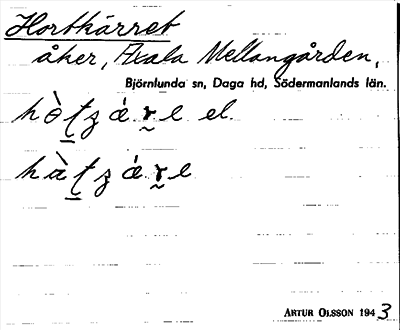 Hortkärret
åker, Axala Mellangården,
Björnlunda sn, Daga hd, Södermanlands län.
el.
ARTUR OLSSON 1943